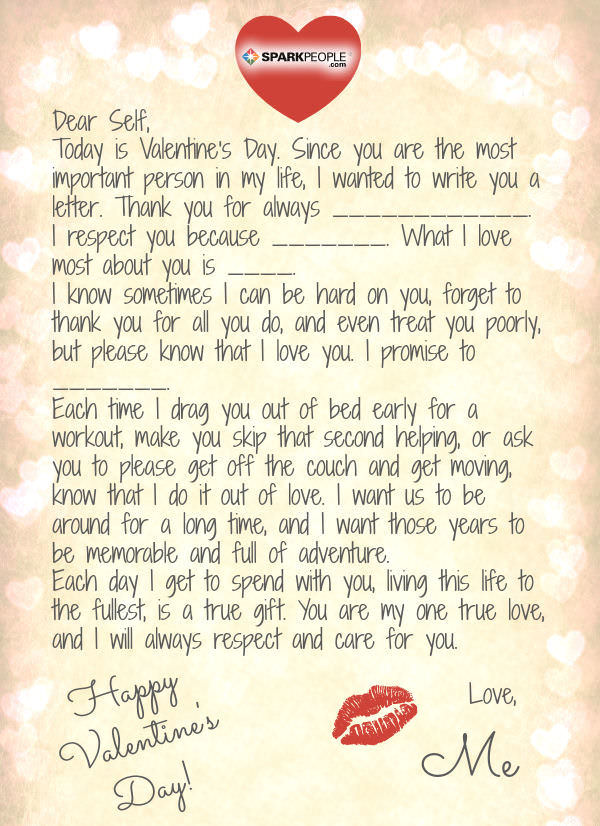 SPARKPEOPLE
.com
Dear Self,
Today is Valentine's Day. Since you are the most
important person in my life, I wanted to write you a
letter. Thank you for always ____________.
I respect you because _______. What I love
most about you is ____.
I know sometimes I can be hard on you, forget to
thank you for all you do, and even treat you poorly,
but please know that I love you. I promise to
_______.
Each time I drag you out of bed early for a
workout, make you skip that second helping, or ask
you to please get off the couch and get moving,
know that I do it out of love. I want us to be
around for a long time, and I want those years to
be memorable and full of adventure.
Each day I get to spend with you, living this life to
the fullest, is a true gift. You are my one true love,
and I will always respect and care for you.
Happy
Valentine's
Day!
Love,
Me